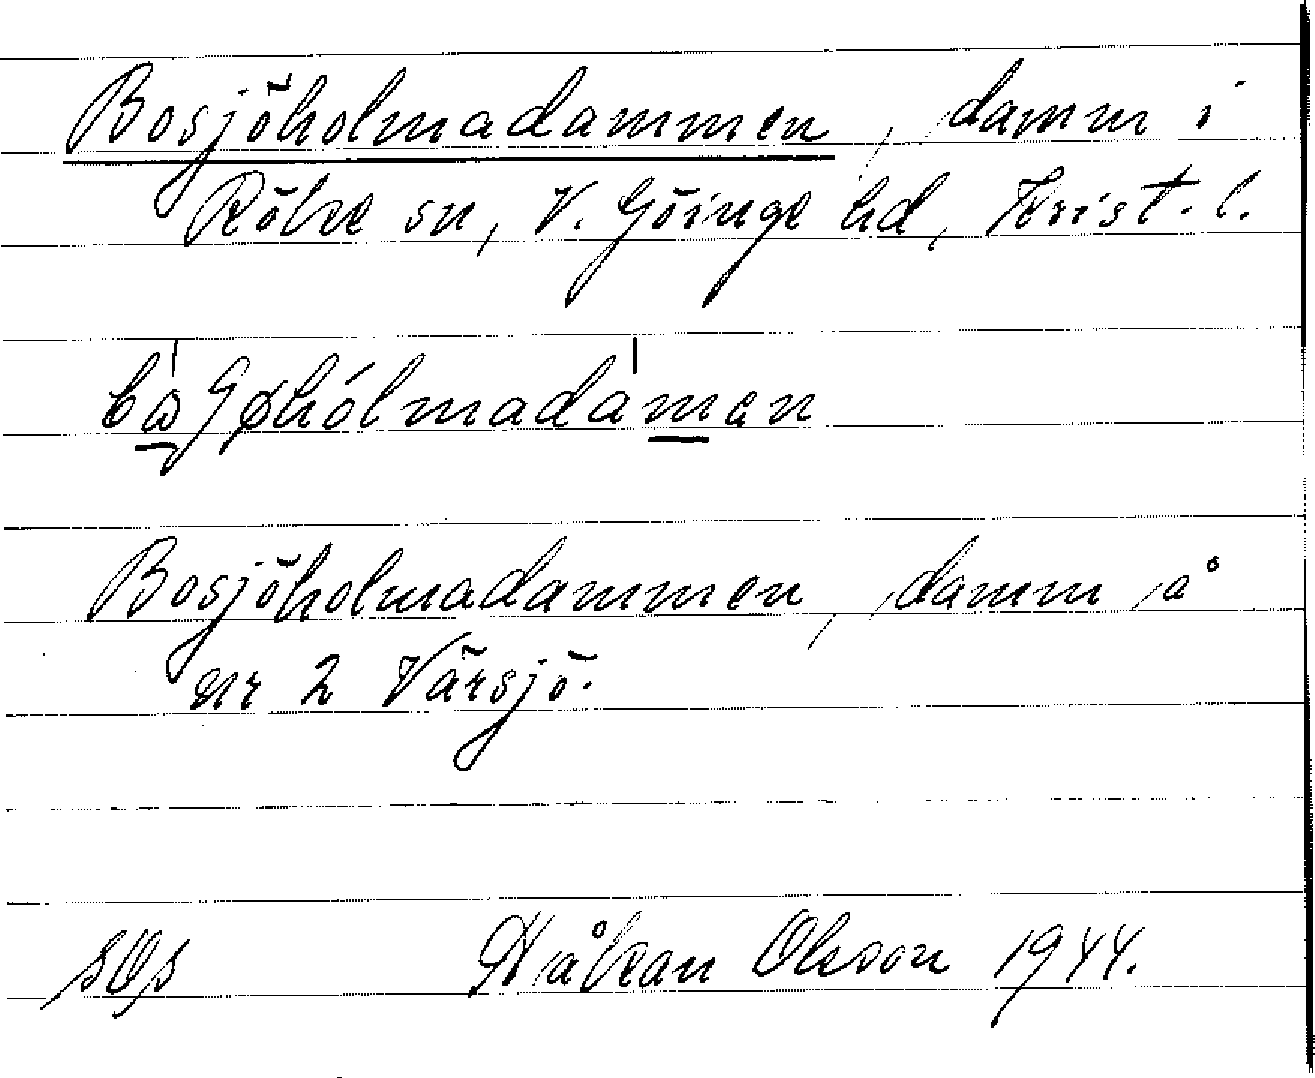 Bosjöholmadammen, damm i
Röke sn, V. Göinge hd, Krist. l.
Bosjöholmadammen, damm å
nr 2 Värsjö.
Håkan Olsson 1944.